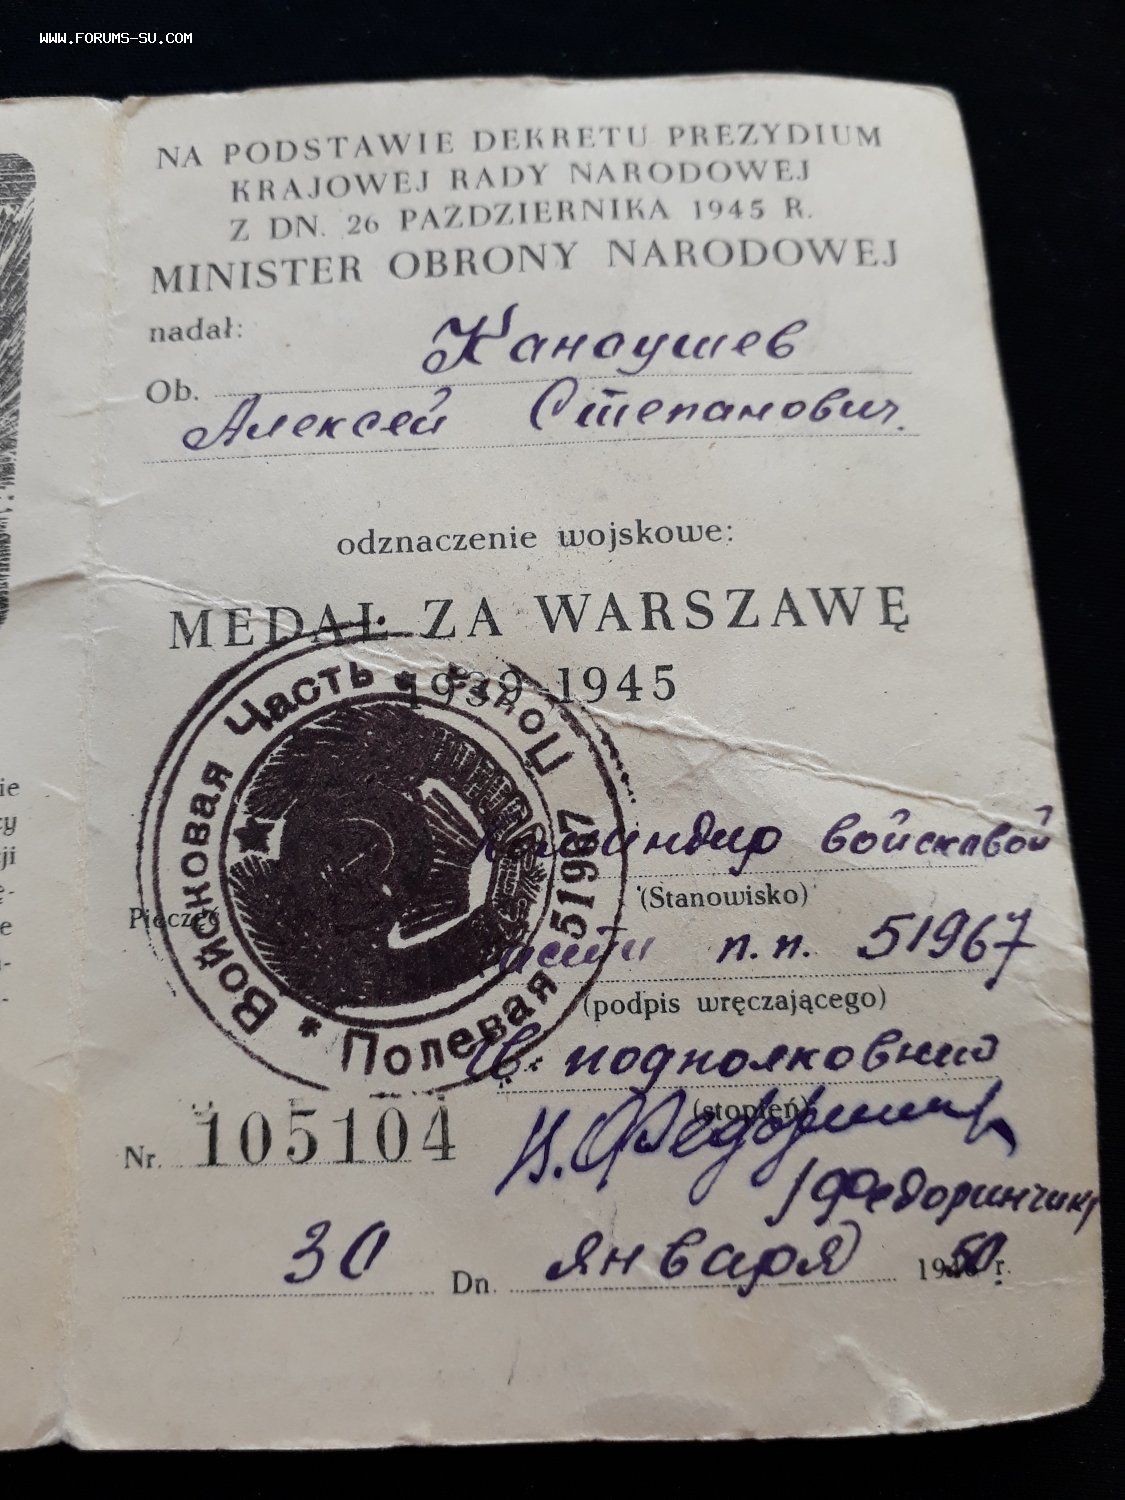 WWW.FORUMS-SU.COM
NA PODSTAWIE DEKRETU PREZYDIUM
KRAJOWEJ RADY NARODOWEJ
Z DN. 26 PAŹDZIERNIKA 1945 R.
MINISTER OBRONY NARODOWEJ
nadał:
Канаушев
Ob.
Алексей Степанович.
odznaczenie wojskowe:
MEDAŁ ZA WARSZAWĘ
1939-1945
Войсковая Часть * Полевая Почта 51967 *
Командир войсковой
(Stanowisko)
Pieczęć
части п.п. 51967
(podpis wręczającego)
Гв. подполковник
(stopień)
Nr. 105104
/Федоринчик/
30 Dn. января 1950 r.
ie
cy
ji
ę-
e